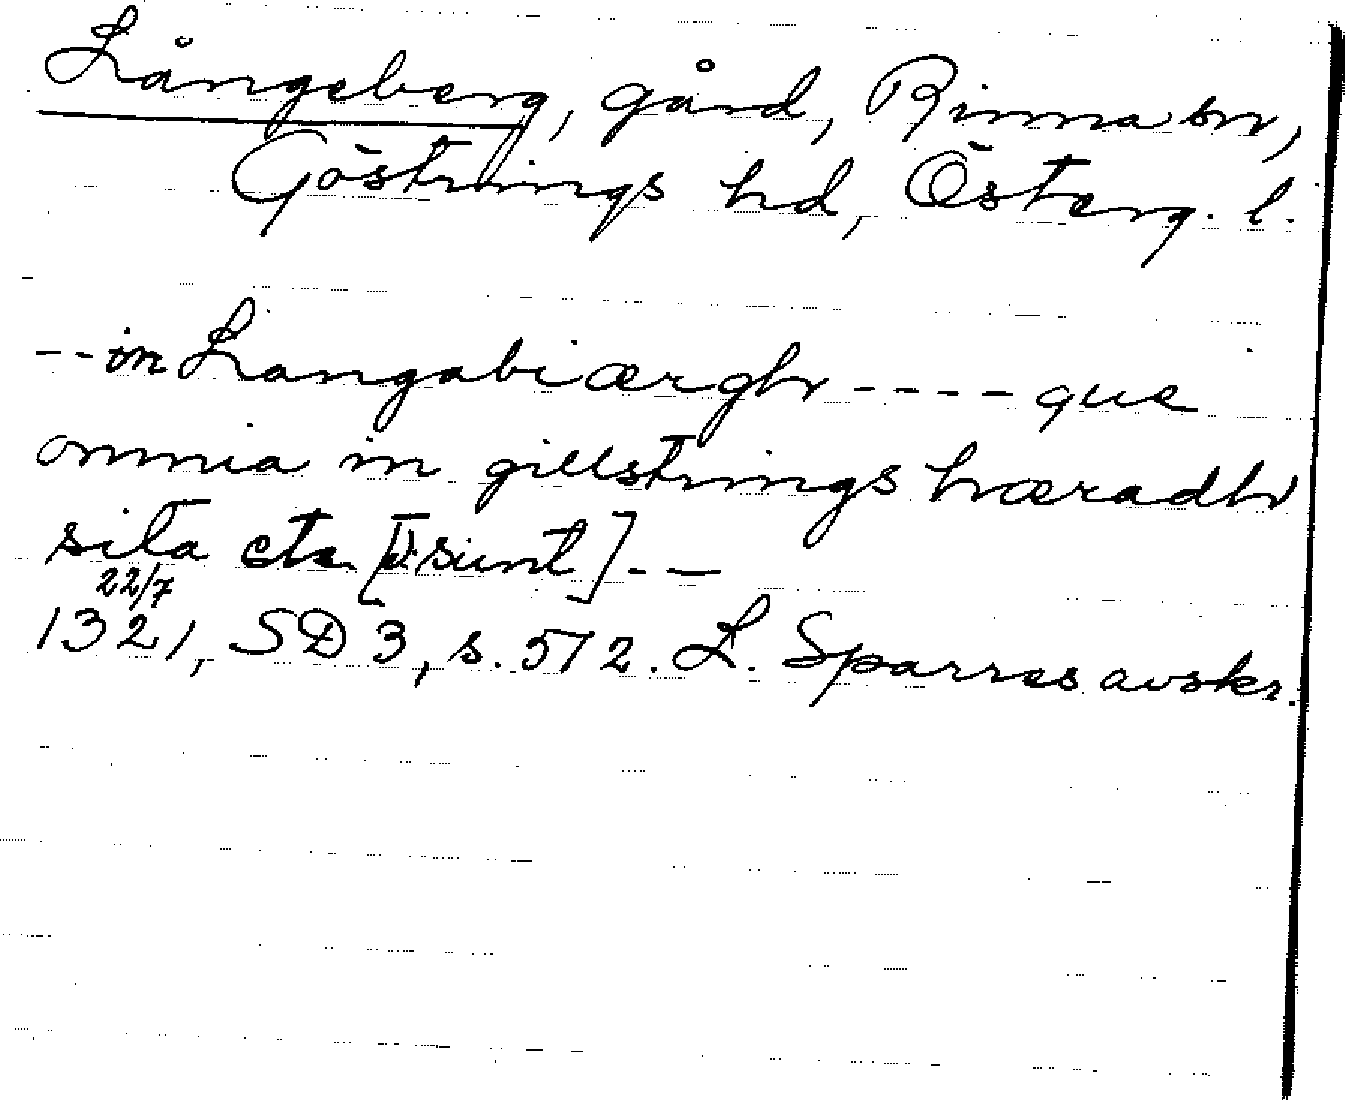 Långeberg, gård, Rinna sn,
Göstrings hd, Österg. l.
-- in Langabiærgh ---- que
omnia in gillstrings hæradh
sita etc [ɔ: sunt] - —
22/7
1321, SD 3, s. 572. L. Sparres avskr.